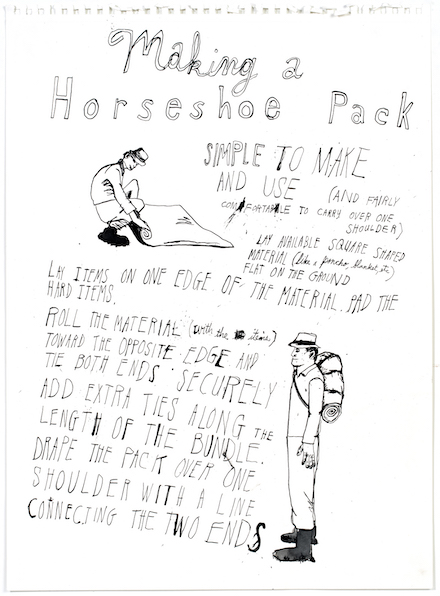 Making a
Horseshoe Pack
SIMPLE TO MAKE
AND USE (AND FAIRLY
COMFORTABLE TO CARRY OVER ONE
SHOULDER)
LAY AVAILABLE SQUARE SHAPED
MATERIAL (like a poncho, blanket, etc)
FLAT ON THE GROUND
LAY ITEMS ON ONE EDGE OF THE MATERIAL. PAD THE
HARD ITEMS.
ROLL THE MATERIAL (with the items)
TOWARD THE OPPOSITE EDGE AND
TIE BOTH ENDS SECURELY
ADD EXTRA TIES ALONG THE
LENGTH OF THE BUNDLE.
DRAPE THE PACK OVER ONE
SHOULDER WITH A LINE
CONNECTING THE TWO ENDS